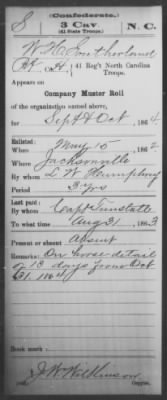 S
(Confederate.)
3 Cav
(41 State Troops.)
N. C.
W. H. Southerland
Pvt, Co. H, 41 Reg't North Carolina
Troops.
Appears on
Company Muster Roll
of the organization named above,
for Sept & Oct, 1864
Enlisted:
When May 15, 1862
Where Jacksonville
By whom L. W. Humphrey
Period 3 Yrs
Last paid:
By whom Capt Tunstall
To what time Aug 31, 1863
Present or absent Absent
Remarks: On horse detail
of 18 days from Oct
31 1864
Book mark:
J. W. Wilkinson
Copyist.